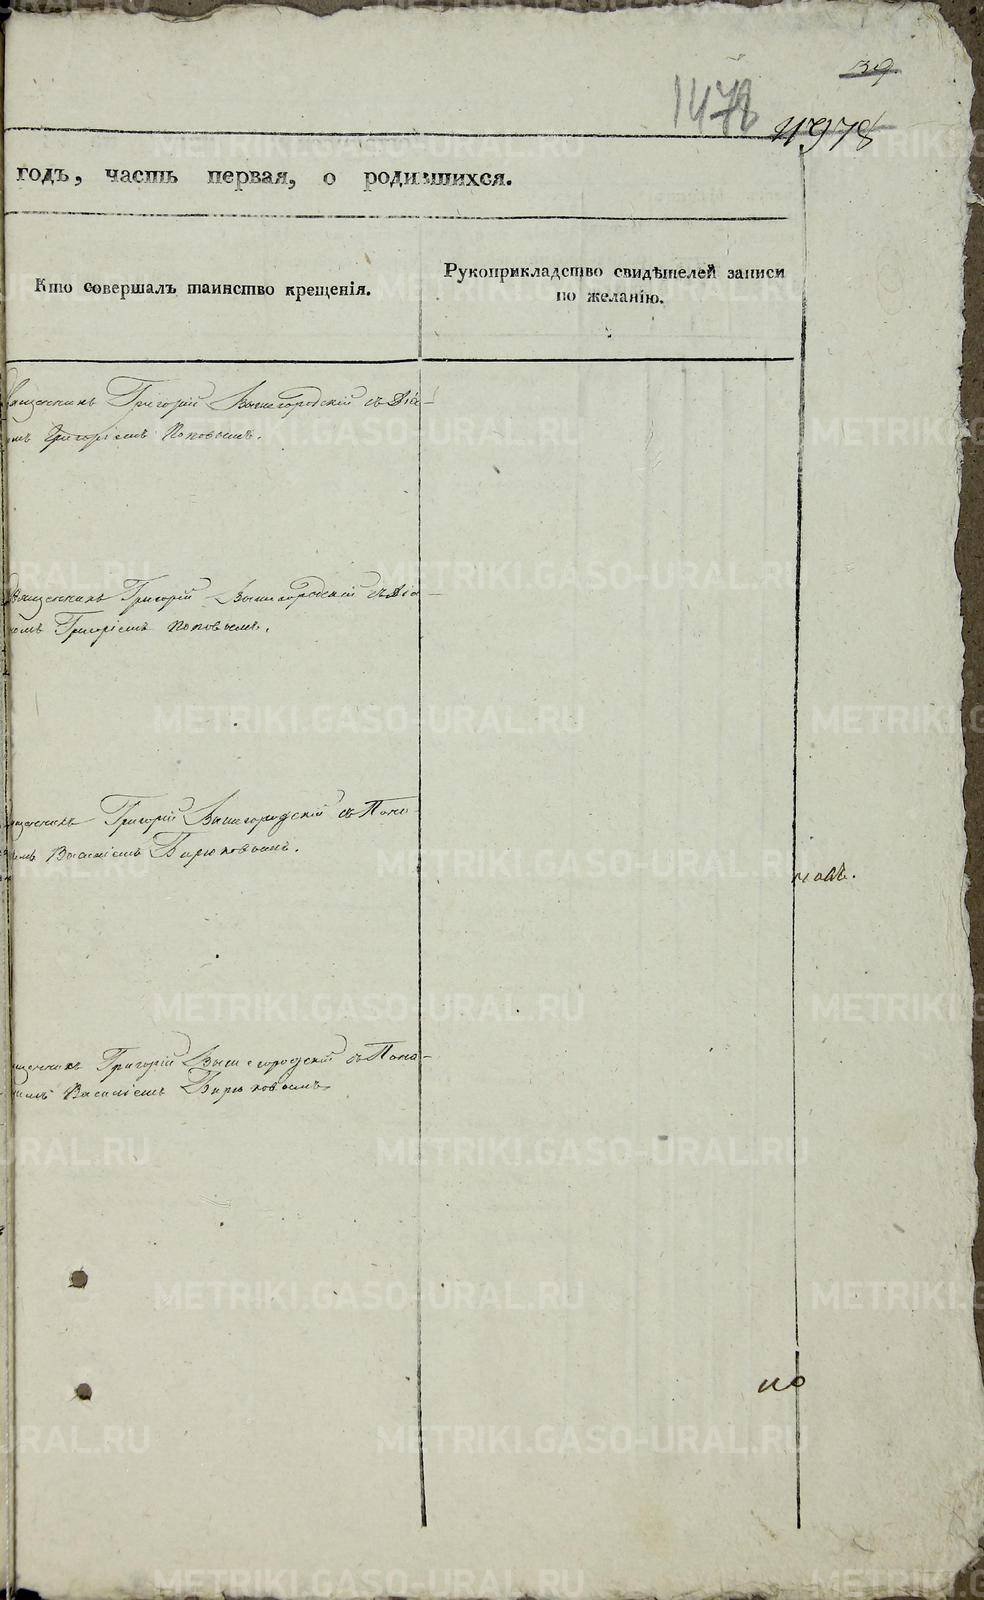 39
1478
годъ, часть первая, о родившихся.
Кто совершалъ таинство крещенія.
Рукоприкладство свидѣтелей записи
по желанію.
Григорій Вышегородскій съ Діа-
Григоріемъ Поповымъ.
Священникъ Григорій Вышегородскій съ Діа-
комъ Григоріемъ Поповымъ.
Григорій Вышегородскій съ Поно-
Василіемъ Бирюковымъ.
Григорій Вышегородскій съ Поно-
Василіемъ Бирюковымъ
по
METRIKI.GASO-URAL.RU